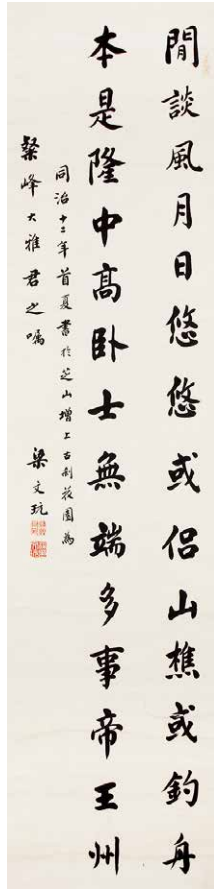 閒談風月日悠悠或侶山樵或釣舟
本是隆中高臥士無端多事帝王州
同治十二年首夏書於芝山增上古刹後園為
粲峰大雅君之囑
梁文玩